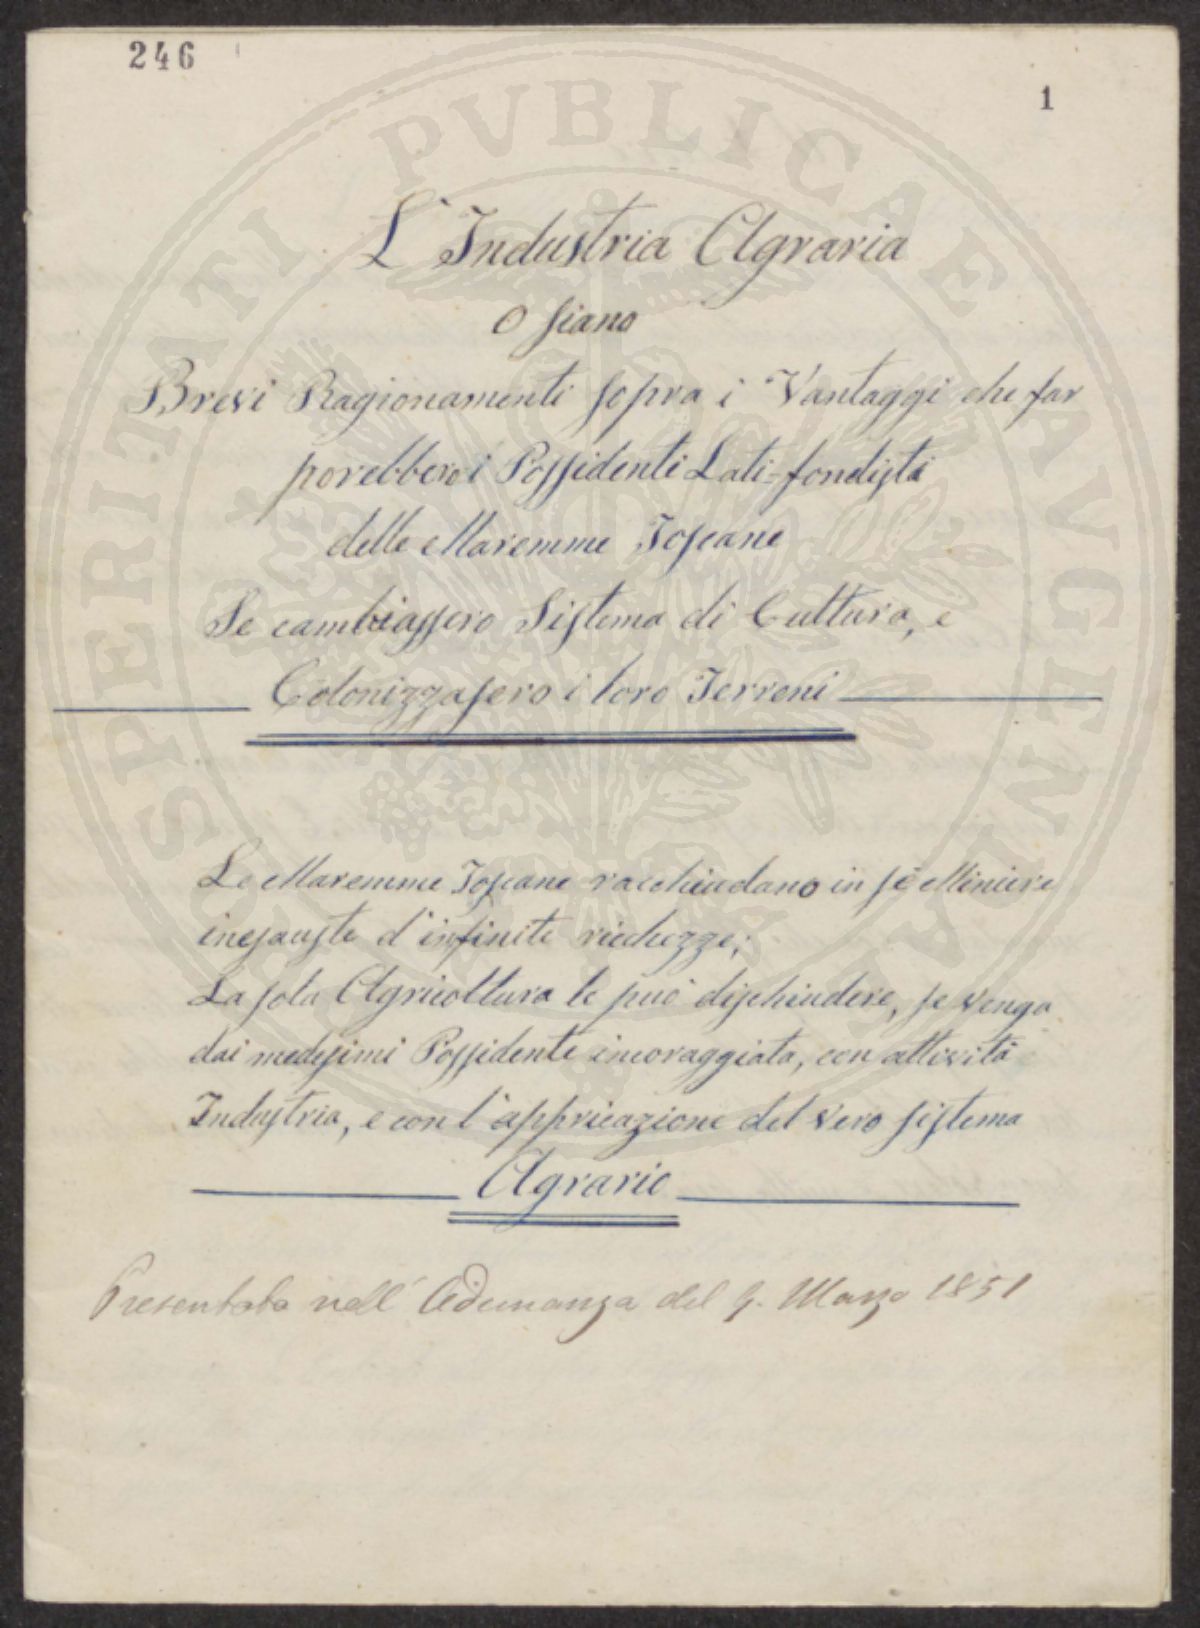 246
1
PVBLICAE
SPERITATI
AVGENDAE
L'Industria Agraria
O siano
Brevi Ragionamenti sopra i Vantaggi che far
porebbero i Possidenti Lati=fondisti
delle Maremme Toscane
Se cambiassero Sistema di Cultura, e
Colonizzasero i loro Terreni
Le Maremme Toscane racchiudano in sé Miniere
inesauste d'infinite ricchezze;
La sola Agricoltura le può dischiudere, se venga
dai medesimi Possidenti incoraggiata, con attività
Industria, e con l'appricazione del vero sistema
Agrario
Presentata nell'Adunanza del 9. Marzo 1851